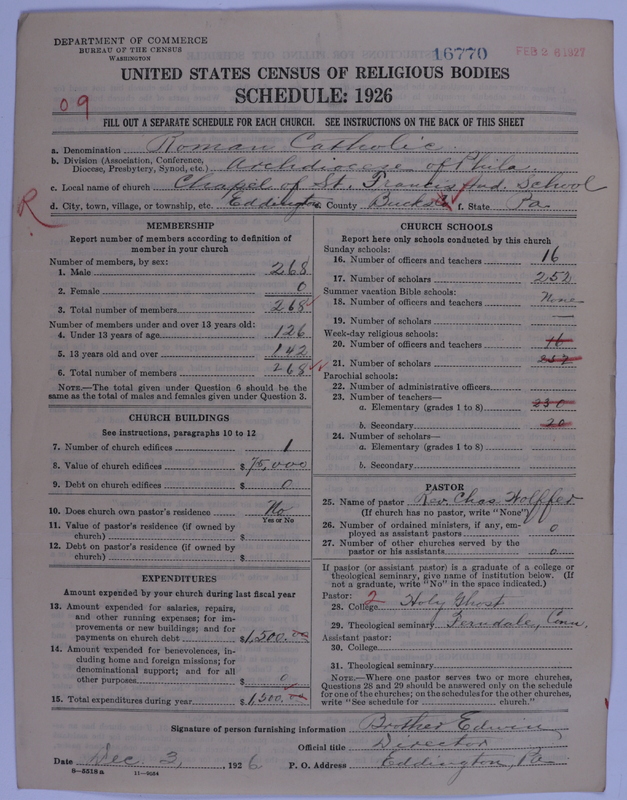 DEPARTMENT OF COMMERCE
BUREAU OF THE CENSUS
WASHINGTON
16770
FEB 26 1927
UNITED STATES CENSUS OF RELIGIOUS BODIES
SCHEDULE: 1926
09
FILL OUT A SEPARATE SCHEDULE FOR EACH CHURCH. SEE INSTRUCTIONS ON THE BACK OF THIS SHEET
a. Denomination Roman Catholic
b. Division (Association, Conference, Diocese, Presbytery, Synod, etc.) Archdiocese of Phila
c. Local name of church Chapel of St. Francis Ind. School
d. City, town, village, or township, etc. Eddington e. County Bucks f. State Pa.
R
MEMBERSHIP
Report number of members according to definition of
member in your church
Number of members, by sex:
1. Male 268
2. Female 0
3. Total number of members 268
Number of members under and over 13 years old:
4. Under 13 years of age 126
5. 13 years old and over 142
6. Total number of members 268
NOTE.—The total given under Question 6 should be
same as the total of males and females given under Question 3.
CHURCH BUILDINGS
See instructions, paragraphs 10 to 12
7. Number of church edifices 1
8. Value of church edifices $75,000
9. Debt on church edifices $ 0
10. Does church own pastor's residence No
Yes or No
11. Value of pastor's residence (if owned by
church) $
12. Debt on pastor's residence (if owned by
church) $
EXPENDITURES
Amount expended by your church during last fiscal year
13. Amount expended for salaries, repairs,
and other running expenses; for im-
provements or new buildings; and for
payments on church debt $1,500.00
14. Amount expended for benevolences, in-
cluding home and foreign missions; for
denominational support; and for all
other purposes $ 0
15. Total expenditures during year $1,500.00
CHURCH SCHOOLS
Report here only schools conducted by this church
Sunday schools:
16. Number of officers and teachers 16
17. Number of scholars 252
Summer vacation Bible schools:
18. Number of officers and teachers None
19. Number of scholars —
Week-day religious schools:
20. Number of officers and teachers 16
21. Number of scholars 252
Parochial schools:
22. Number of administrative officers
23. Number of teachers—
a. Elementary (grades 1 to 8) 230
b. Secondary 20
24. Number of scholars—
a. Elementary (grades 1 to 8)
b. Secondary
PASTOR
25. Name of pastor Rev. Chas. Wolffer
(If church has no pastor, write "None")
26. Number of ordained ministers, if any, em-
ployed as assistant pastors 0
27. Number of other churches served by the
pastor or his assistants 0
If pastor (or assistant pastor) is a graduate of a college or
theological seminary, give name of institution below. (If
not a graduate, write "No" in the space indicated.)
Pastor: 2
28. College Holy Ghost
29. Theological seminary Ferndale, Conn.
Assistant pastor:
30. College
31. Theological seminary
NOTE.—Where one pastor serves two or more churches,
Questions 28 and 29 should be answered only on the schedule
for one of the churches; on the schedules for the other churches,
write "See schedule for church."
Signature of person furnishing information Brother Edwin
Official title Director
Date Dec. 3, 1926 P. O. Address Eddington, Pa
8—5518a 11—9264